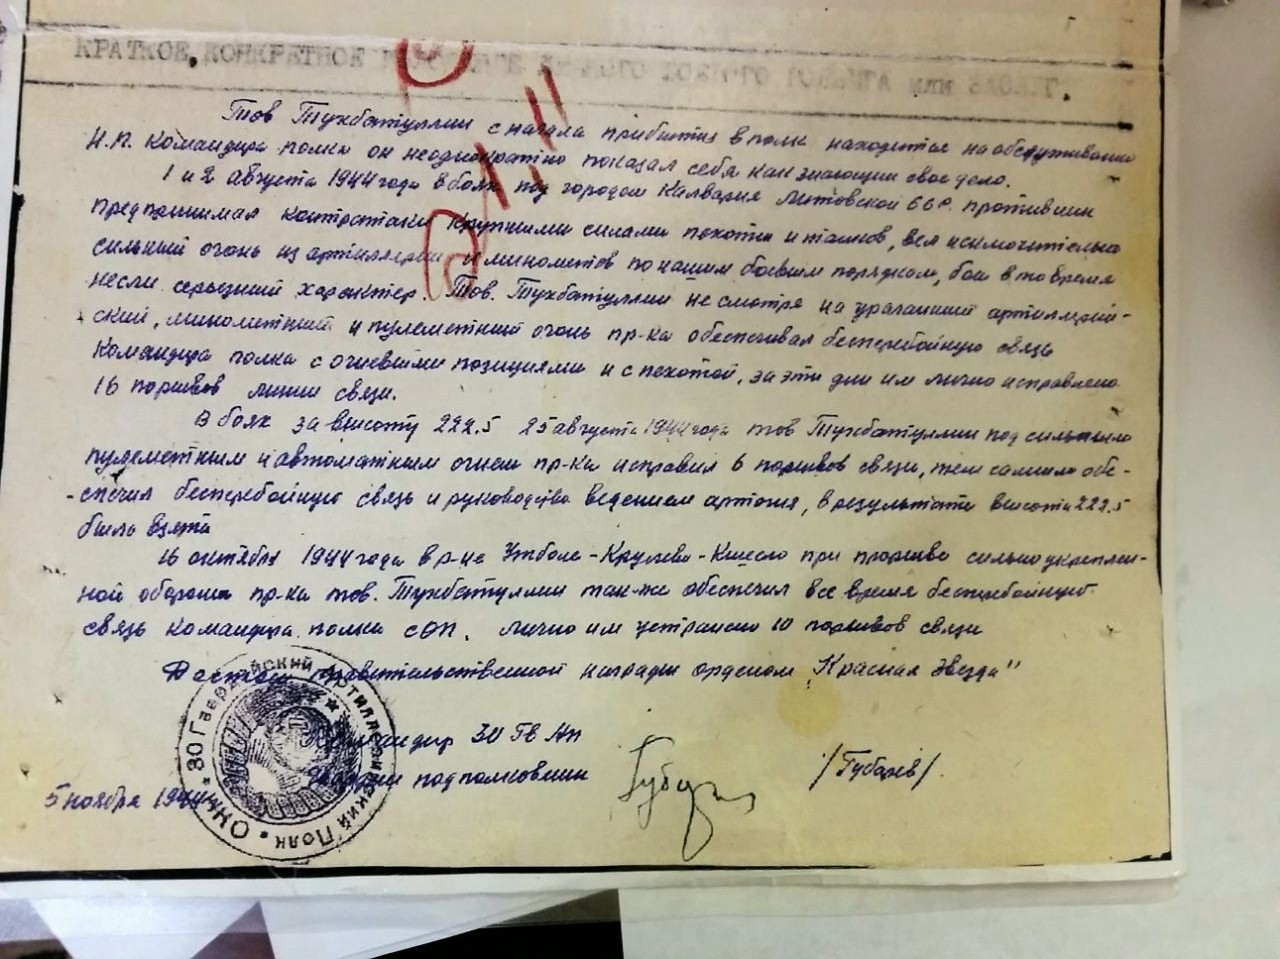 КРАТКОЕ, КОНКРЕТНОЕ ИЗЛОЖЕНИЕ ЛИЧНОГО БОЕВОГО ПОДВИГА ИЛИ ЗАСЛУГ.
Тов Тухбатуллин с начала прибытия в полк находится на обслуживании
Н.П. командира полка он неоднократно показал себя как знающий свое дело.
1 и 2 августа 1944 года в боях под городом Калвария Литовской ССР. противник
предпринимал контратаки крупными силами пехоты и танков, вел исключительно
сильный огонь из артиллерии и минометов по нашим боевым порядкам, бои в то время
несли серьезный характер. Тов. Тухбатуллин не смотря на ураганный артиллерий-
ский, минометный и пулеметный огонь пр-ка обеспечивал бесперебойную связь
Командира полка с огневыми позициями и с пехотой, за эти дни им лично исправлено
16 порывов линии связи.
В боях за высоту 222.5 25 августа 1944 года тов Тухбатуллин под сильным
пулеметным и автоматным огнем пр-ка исправил 6 порывов связи, тем самым обе-
-спечил бесперебойную связь и руководства ведением артогня, в результате высота 222.5
была взята
16 октября 1944 года в р-не - - при прорыве сильно укреплен-
ной обороны пр-ка тов. Тухбатуллин так-же обеспечил все время бесперебойную
связь командира полка с ОП. лично им устранено 10 порывов связи
Достоин правительственной награды орденом "Красная звезда"
Командир 30 Гв Ап
гвардии подполковник /Губарев/.
5 ноября 1944
30 Гвардейский Артиллерийский Полк